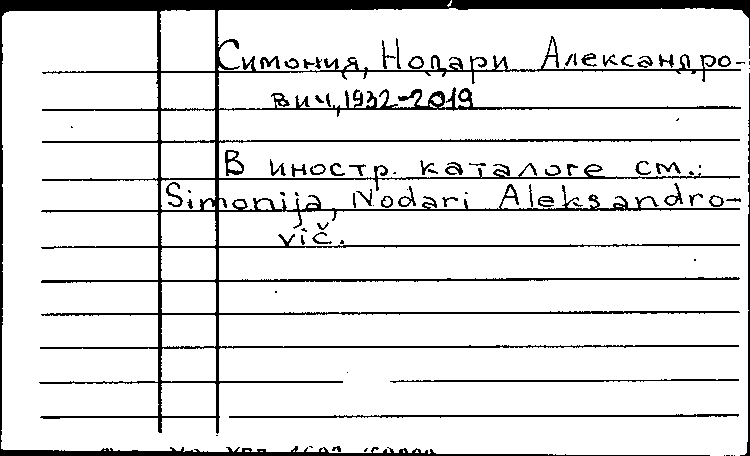 Симония, Нодари Александро-
вич, 1932-2019
В иностр. каталоге см.:
Simonija, Nodari Aleksandro-
vič.